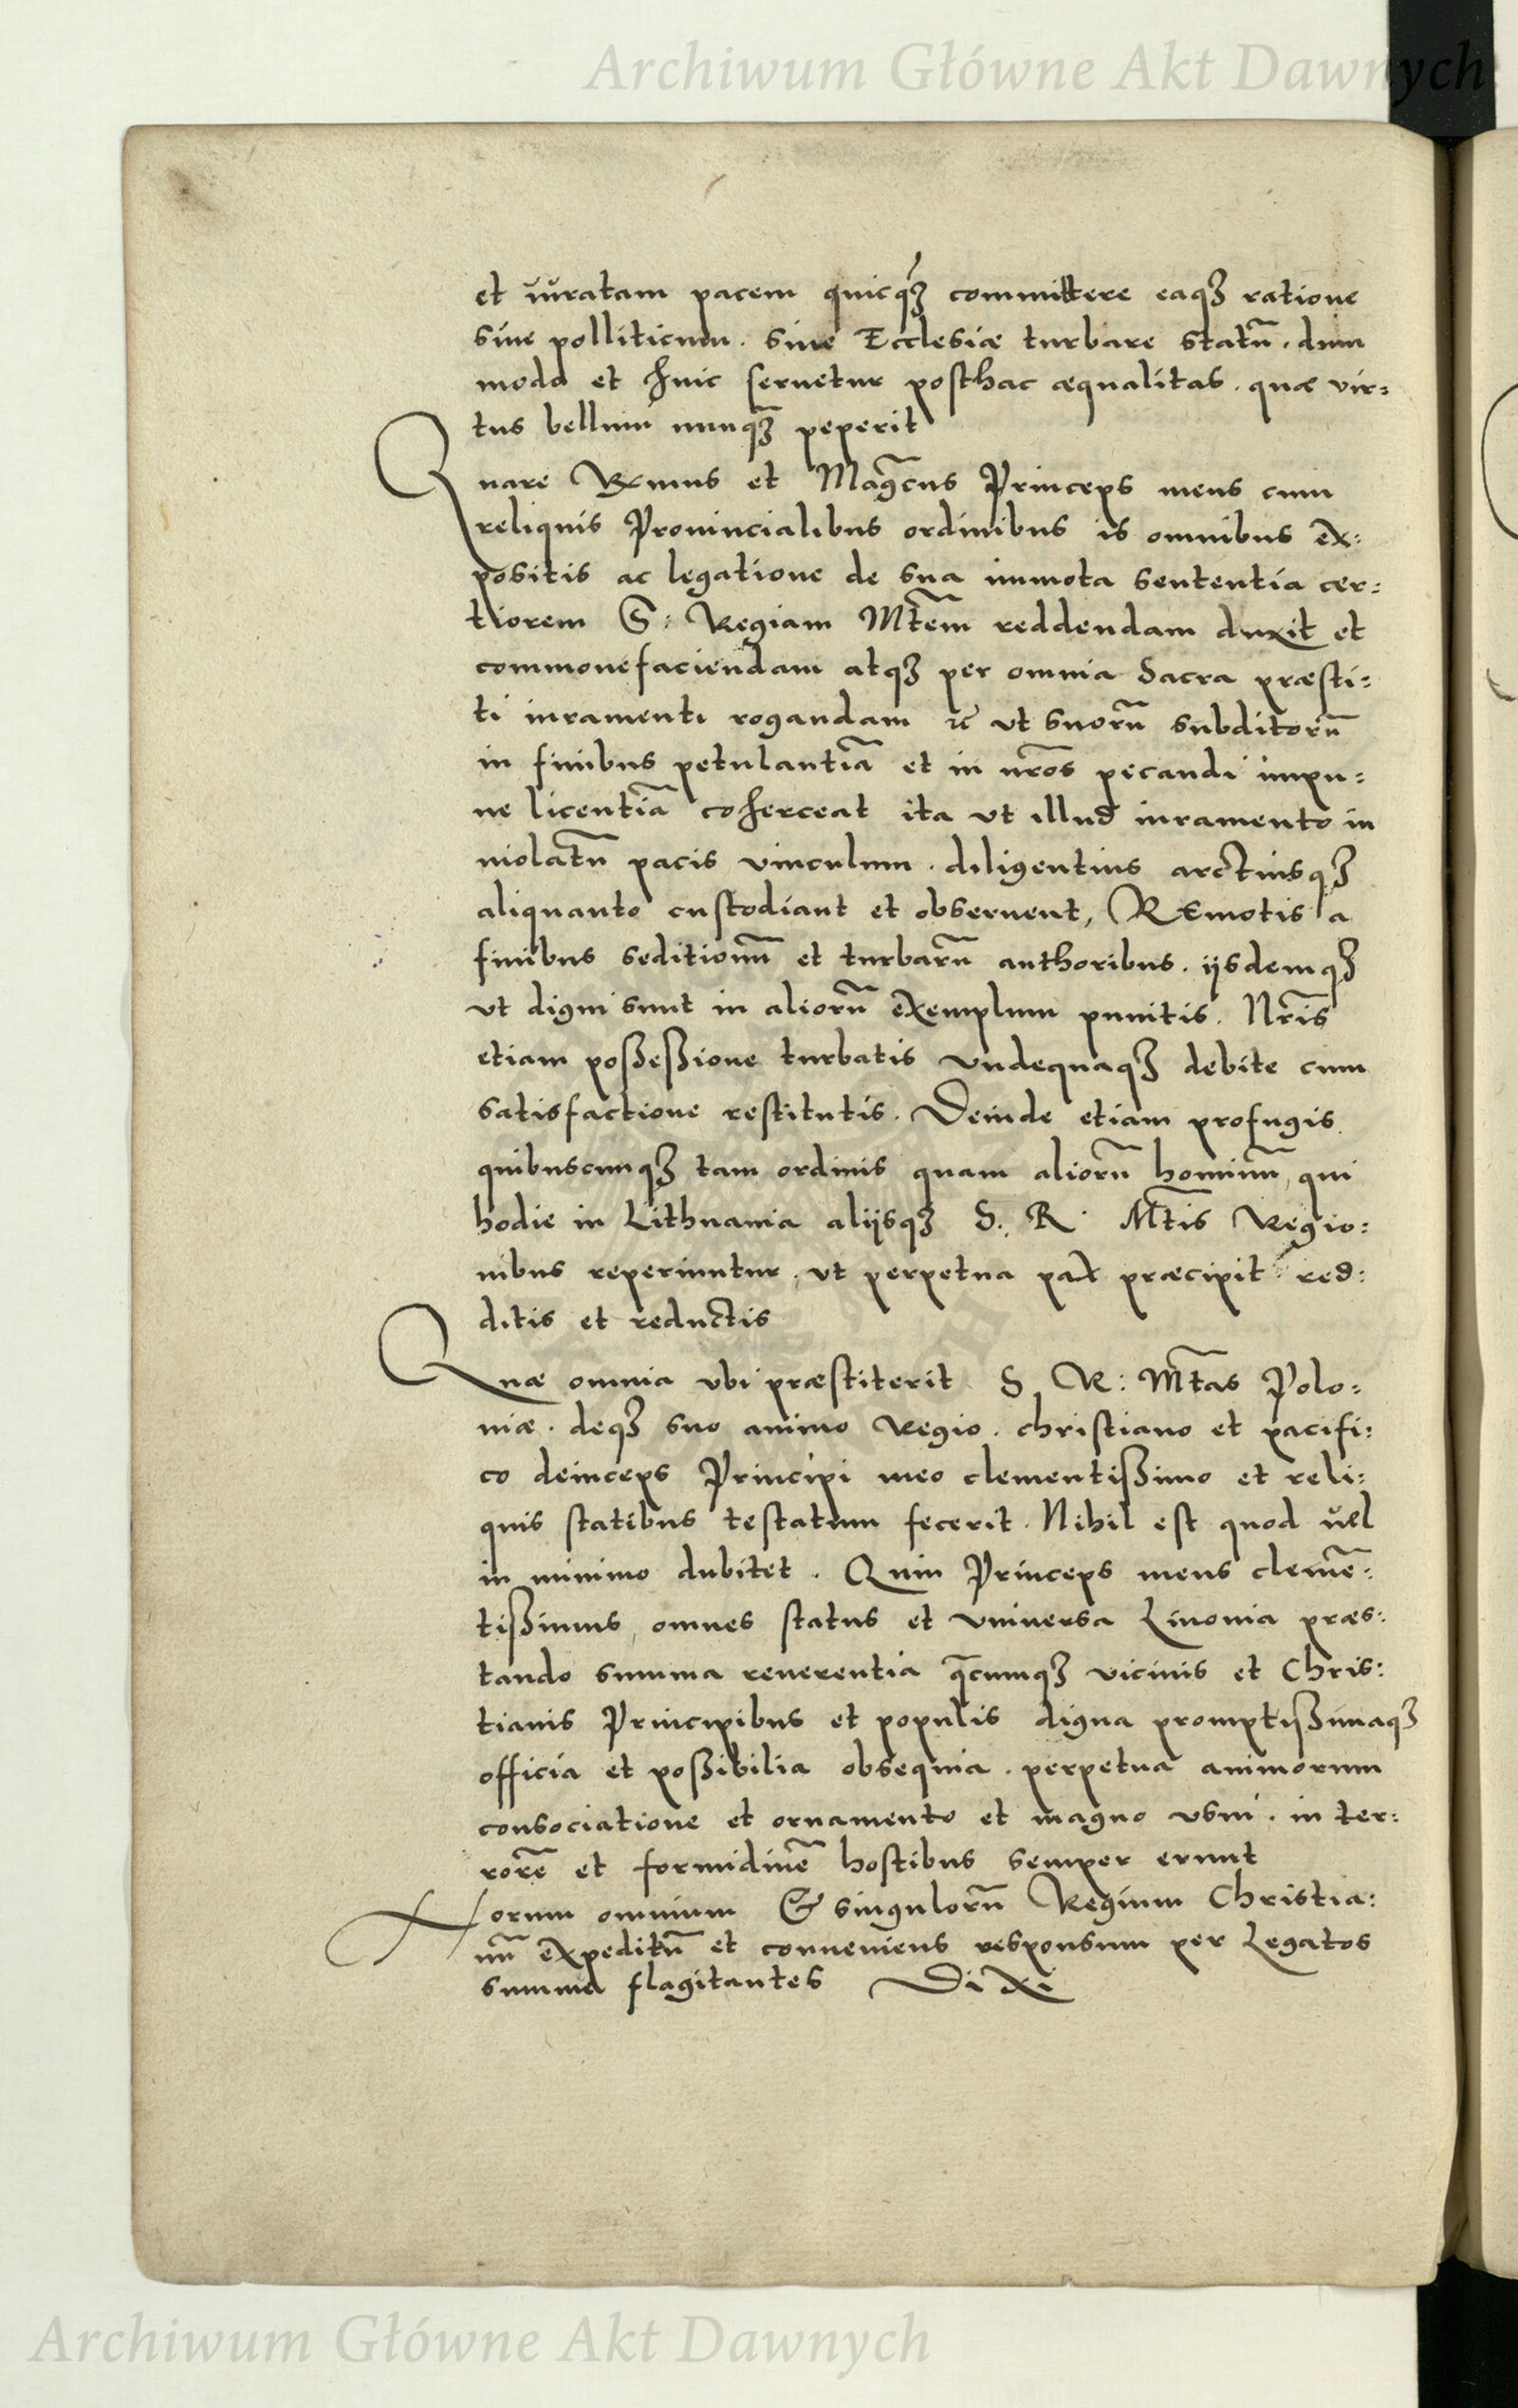 Archiwum Główne Akt Dawnych
et iuratam pacem quicqȝ committere eaqȝ ratione
siue polliticum. siue Ecclesiæ turbare statū. dum
modo et huic seruetur posthac æqualitas. quæ vir=
tus bellum nunqȝ peperit
Quare Rx̄mus et Magc̄us Princeps meus cum
reliquis Prouincialibus ordinibus is omnibus ex:
positis ac legatione de sua immota sententia cer:
tiorem S: Regiam Mtēm reddendam duxit et
commonefaciendam atqȝ per omnia Sacra præsti:
ti iuramenti rogandam ꝛc̄ vt suorū subditorū
in finibus petulantiā et in nrōs pecandi impu:
ne licentiā coherceat ita vt illud iuramento in
uiolatū pacis vinculum. diligentius arctiusqȝ
aliquanto custodiant et obseruent, Remotis a
finibus seditionū et turbarū authoribus. ijsdemqȝ
vt digni sunt in aliorū exemplum punitis. Nrīs
etiam poßeßione turbatis vndequaqȝ debite cum
satisfactione restitutis. Deinde etiam profugis
quibuscunqȝ tam ordinis quam aliorū hominū, qui
hodie in Lithuania alijsqȝ S. R. Mtīs Regio:
nibus reperiuntur, vt perpetua pax præcipit red:
ditis et reductis
Quæ omnia vbi præstiterit S R: Mtās Polo:
niæ. deqȝ suo animo Regio. christiano et pacifi:
co deinceps Principi meo clementißimo et reli:
quis statibus testatum fecerit. Nihil est quod vel
in minimo dubitet. Quin Princeps meus clemē:
tißimus, omnes status et vniuersa Liuonia præs:
tando summa reuerentia qācumqȝ vicinis et Chris:
tianis Principibus et populis digna promptißimaqȝ
officia et poßibilia obsequia. perpetua animorum
consociatione et ornamento et magno vsui. in ter:
rorē et formidinē hostibus semper erunt
Horum omnium & singulorū Regium Christia:
nū expeditū et conueniens responsum per Legatos
summa flagitantes Dixi
Archiwum Główne Akt Dawnych